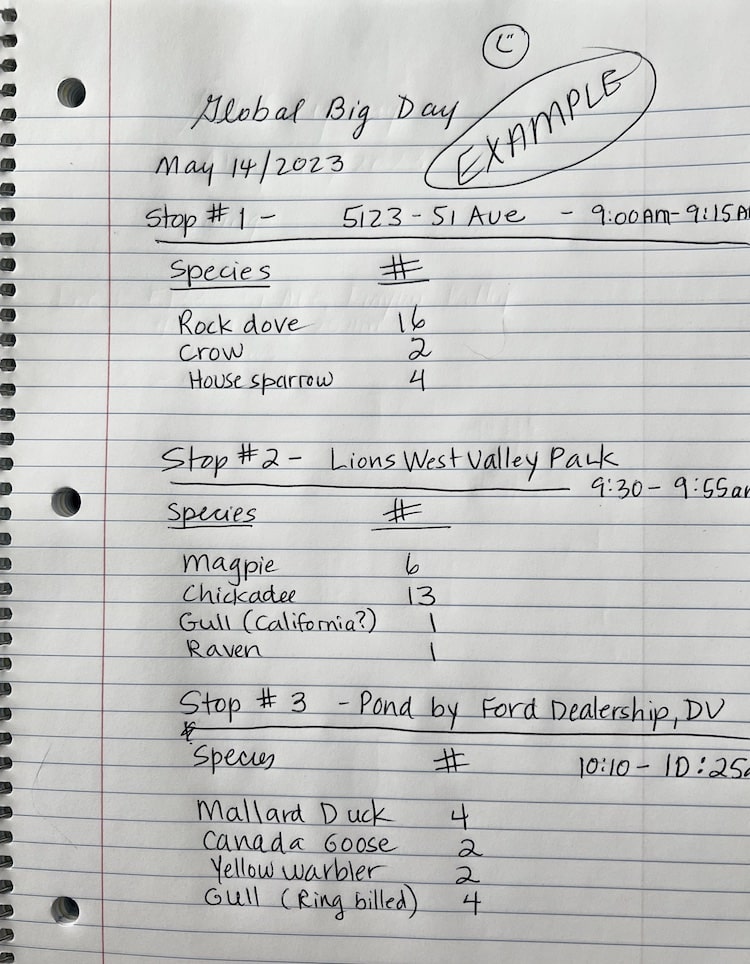 Global Big Day
EXAMPLE
May 14/2023
Stop #1 - 5123 - 51 Ave - 9:00AM - 9:15A
Species #
Rock dove 16
Crow 2
House sparrow 4
Stop #2 - Lions West Valley Park
9:30 - 9:55a
Species #
Magpie 6
Chickadee 13
Gull (California?) 1
Raven 1
Stop # 3 - Pond by Ford Dealership, DV
Species # 10:10 - 10:25a
Mallard Duck 4
Canada Goose 2
Yellow warbler 2
Gull (Ring billed) 4